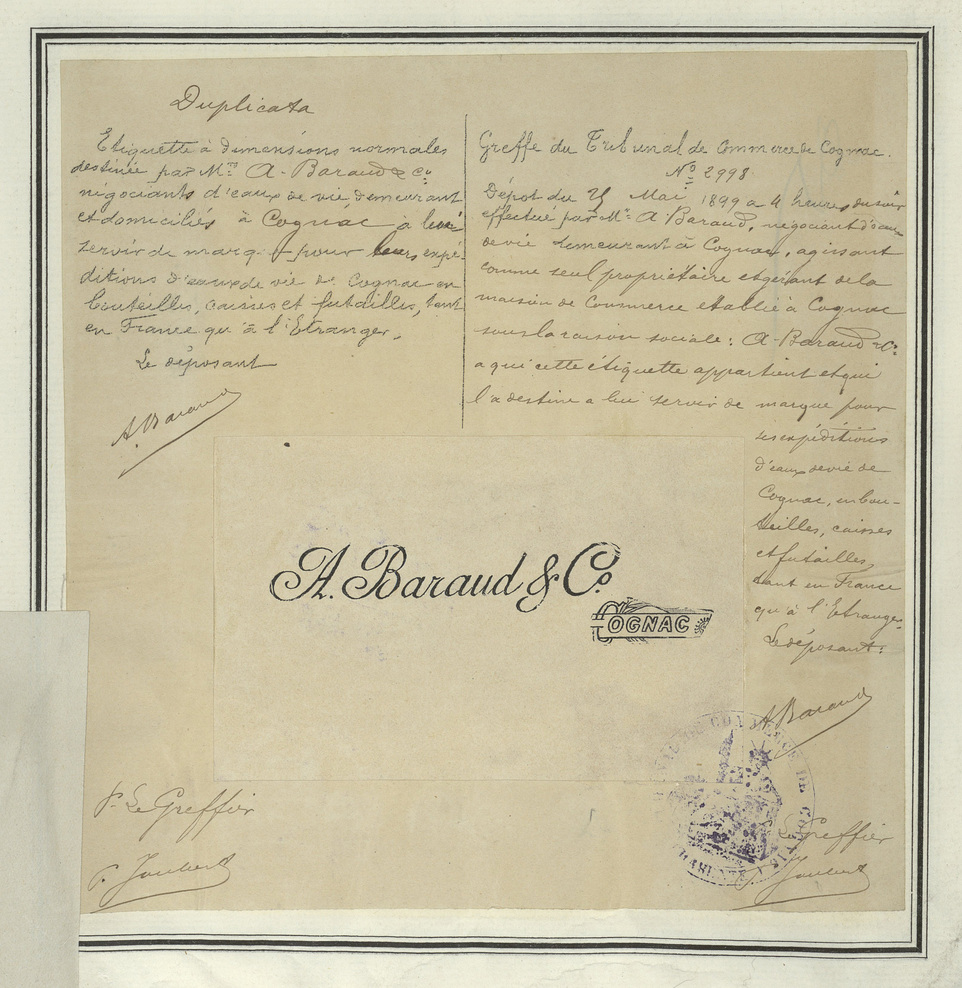 Duplicata
Etiquette à dimensions normales
destinée par Mrs A. Baraud & Cie
négociants d'eaux de vie demeurant
et domiciliés à Cognac à leur
servir de marque pour leurs expé-
ditions d'eaux de vie de Cognac en
bouteilles, caisses et futailles, tant
en France qu'à l'Etranger.
Le déposant
A. Baraud
Greffe du Tribunal de Commerce de Cognac.
No 2998
Dépôt du Mai 1899 à 4 heures du soir
effectué par Mr A Baraud, négociant d'eaux
de vie demeurant à Cognac, agissant
comme seul propriétaire et gérant de la
maison de Commerce établie à Cognac
sous la raison sociale: A. Baraud & Co
a qui cette étiquette appartient et qui
l'a destine a lui servir de marque pour
ses expéditions
d'eaux de vie de
Cognac, en bou-
teilles, caisses
et futailles,
tant en France
qu'à l'Etranger.
Le déposant:
A Baraud
A. Baraud & Co.
COGNAC
P. Le Greffier
P. Joubert
Le Greffier
Joubert